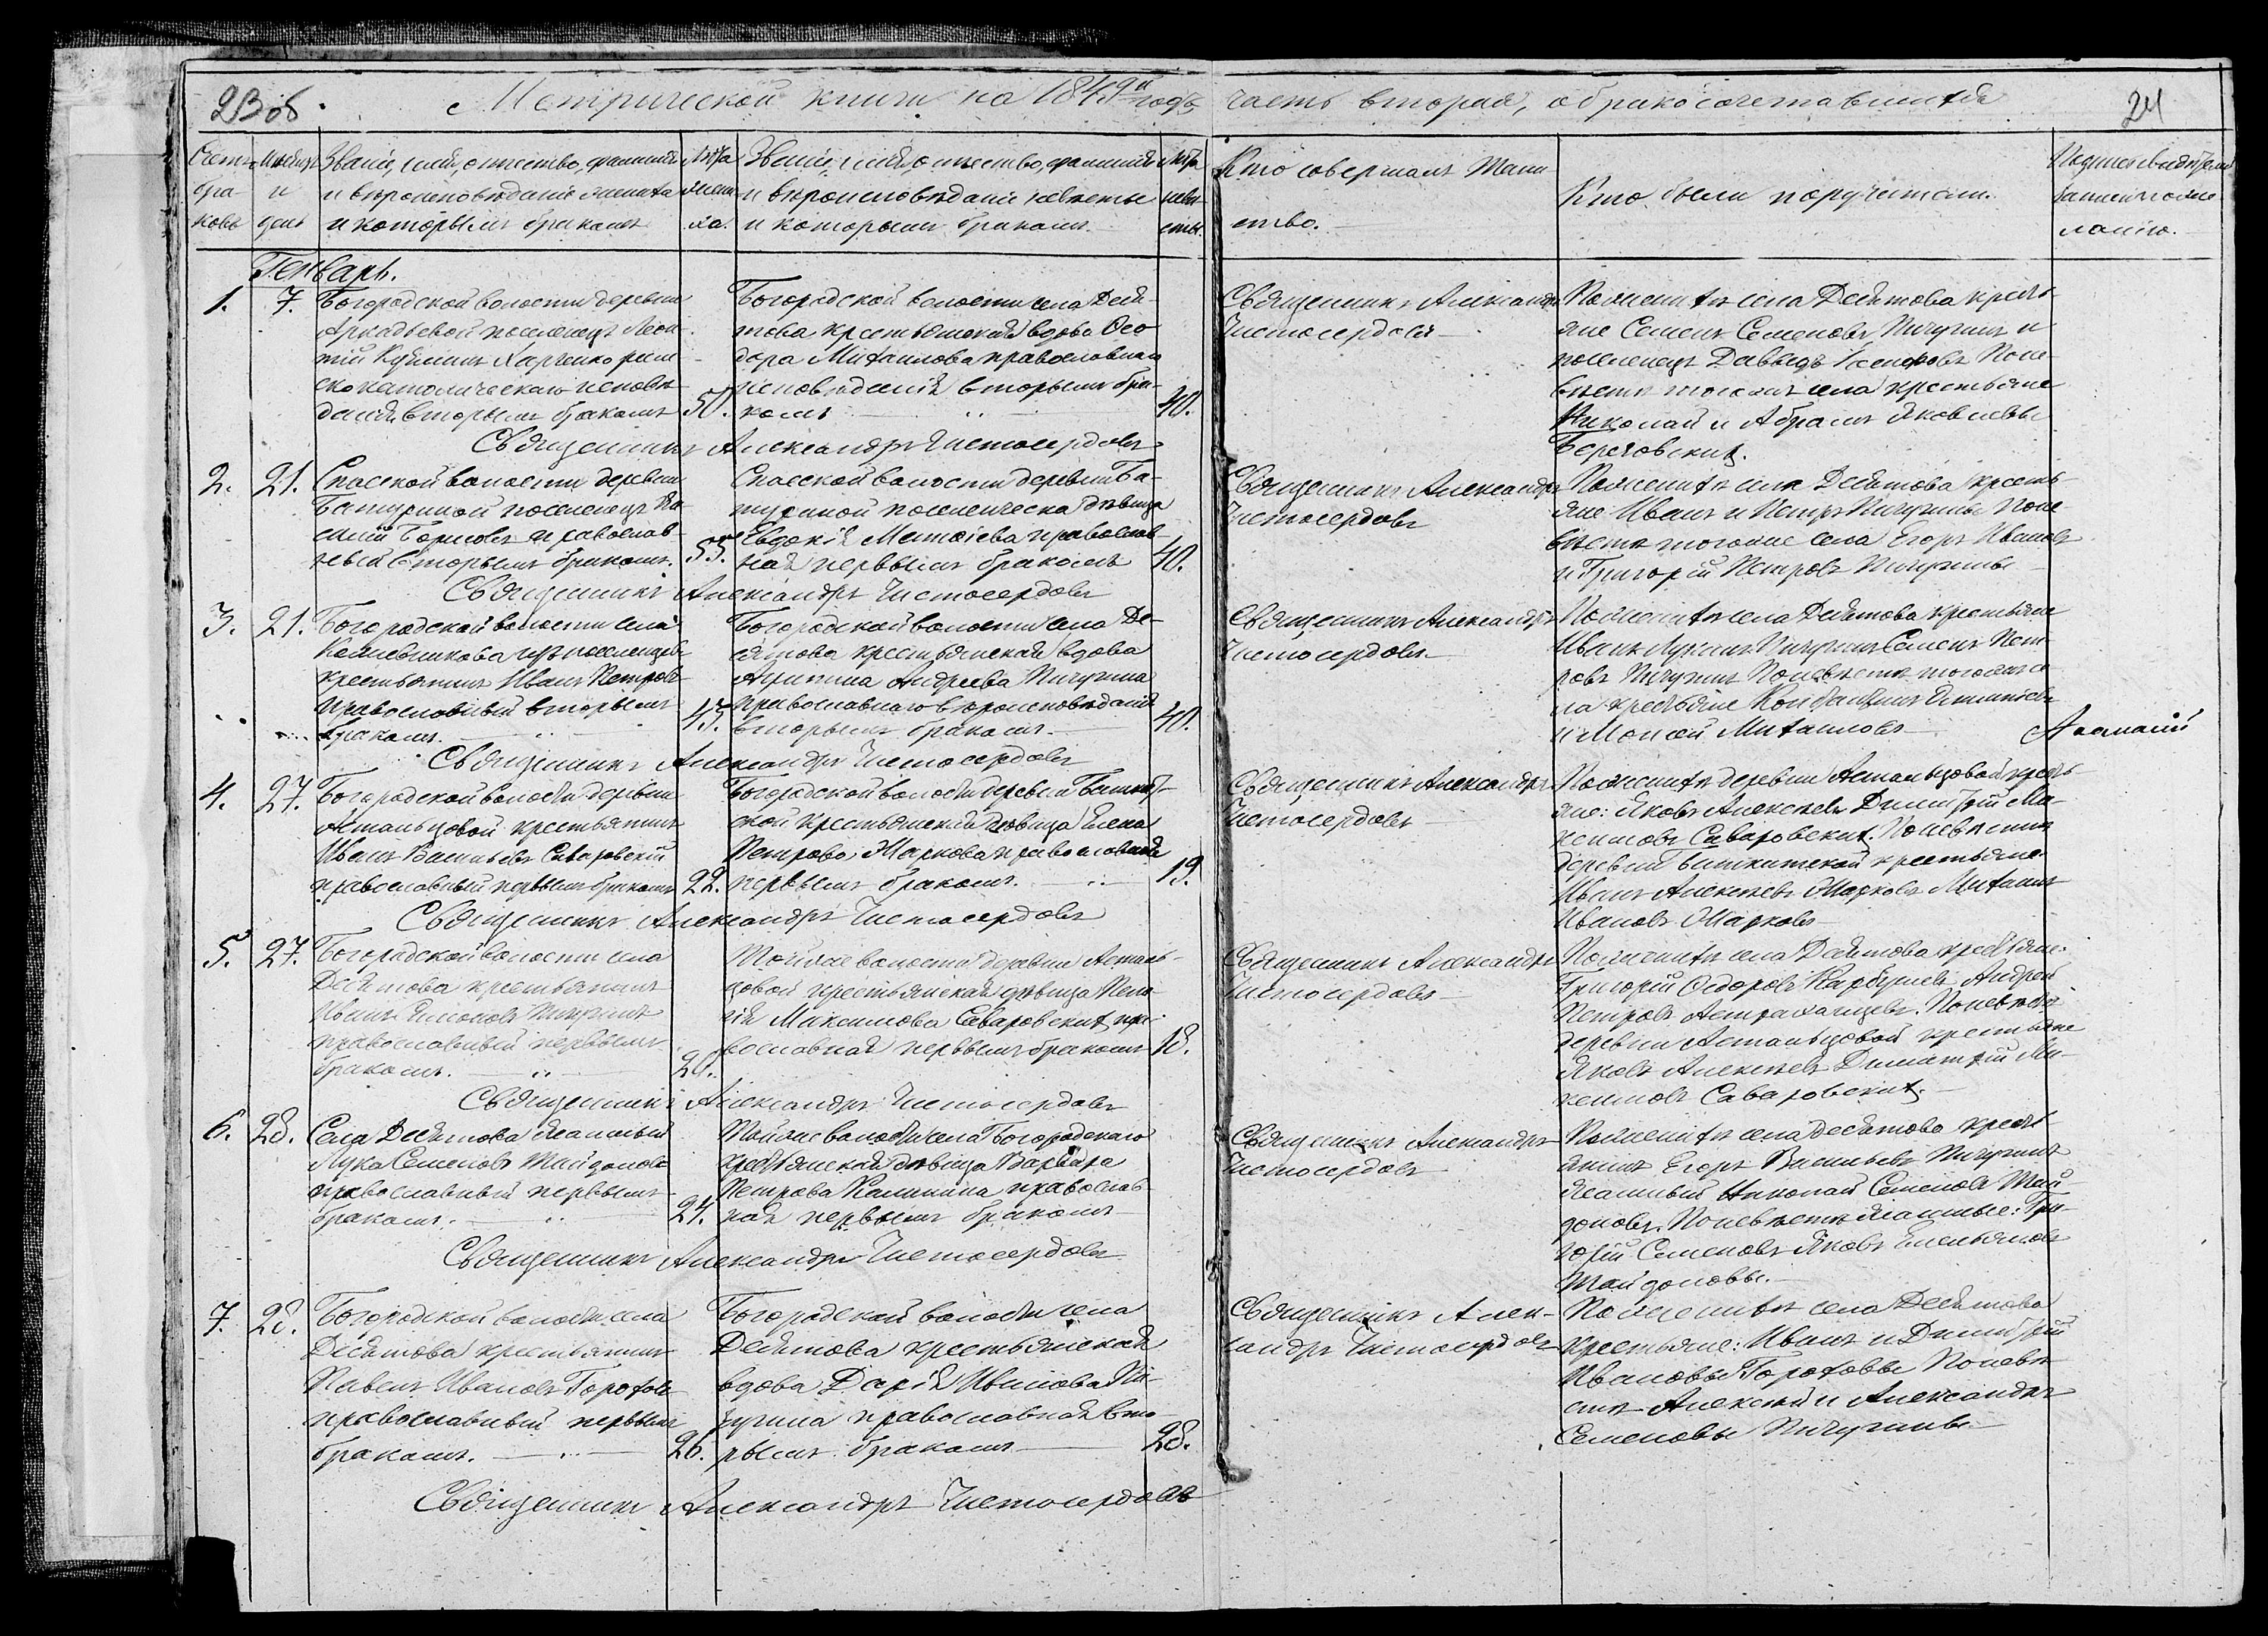 23об.
Метрической книги на 1849й годъ
часть вторая, о бракосочетавшихся
24
Счетъ бра- ковъ
Мѣсяцъ и день
Званіе, имя, отчество, фамилія
и вѣроисповѣданіе жениха
и которымъ бракомъ
Лѣта жени- ха.
Званіе, имя, отчество, фамилія
и вѣроисповѣданіе невѣсты
и которымъ бракомъ.
Лѣта невѣ- сты.
Кто совершалъ Таин-
ство.
Кто были поручители.
Генварь.
1.
7.
Богородской волости деревни
Аркадьевой поселенецъ Леон-
тій Харченко рим-
скокатолическаго исповѣ-
данія вторымъ бракомъ
50.
Богородской волости села Деся-
това крестьянская вдова Ѳео-
дора Михаилова православнаго
исповѣданія вторымъ бра-
комъ
40.
Священникъ Александръ
Чистосердовъ
По женихѣ села Десятова кресть-
яне Семенъ Семеновъ Пичугинъ и
поселенецъ Давыдъ По не-
вѣстѣ тогожъ села крестьяне
Николай и Абрамъ Яковлевы
Священникъ Александръ Чистосердовъ
2.
21.
Спасской волости деревни
Батуриной поселенецъ Ва-
силій Борисовъ православ-
ный вторымъ бракомъ.
55.
Спасской волости деревни Ба-
туриной поселенческа дѣвица
Евдокія православ-
ная первымъ бракомъ
40.
Священникъ Александръ
Чистосердовъ
По женихѣ села Десятова кресть-
яне Иванъ и Петръ Пичугины По не-
вѣстѣ тогоже села Егоръ Ивановъ
и Григорій Петровъ Пичугины
Священникъ Александръ Чистосердовъ
3.
21.
Богородской волости села
Кожевникова изъ поселенцевъ
крестьянинъ Иванъ Петровъ
православный вторымъ
бракомъ.
45.
Богородской волости села Де-
сятова крестьянская вдова
Агрипина Андреева Пичугина
православнаго вѣроисповѣданія
вторымъ бракомъ.
40.
Священникъ Александръ
Чистосердовъ
По женихѣ села Десятова крестьяне
Иванъ Пичугинъ Семенъ Пет-
ровъ Пичугинъ По невѣстѣ тогоже се-
ла крестьяне
и Моисей Михаиловъ
Аѳанасій
Священникъ Александръ Чистосердовъ
4.
27.
Богородской волости деревни
Астальцовой крестьянинъ
Иванъ Васильевъ Саваровскій
православный первымъ бракомъ
22.
Богородской волости деревни
крестьянская дѣвица Елена
Петрова Маркова православная
первымъ бракомъ.
19.
Священникъ Александръ
Чистосердовъ
По женихѣ деревни Астальцовой кресть-
яне: Яковъ Алексѣевъ Димитрій Ма-
ксимовъ Саваровскихъ. По невѣстѣ
деревни крестьяне
Иванъ Алексѣевъ Марковъ Михаилъ
Ивановъ Марковъ
Священникъ Александръ Чистосердовъ
5.
27.
Богородской волости села
Десятова крестьянинъ
Иванъ Пичугинъ
православный первымъ
бракомъ.
20.
Тойже волости деревни Асталь-
цовой крестьянская дѣвица
Максимова Саваровскихъ пра-
вославная первымъ бракомъ
18.
Священникъ Александръ
Чистосердовъ
По женихѣ села Десятова крестьяне:
Григорій Ѳедоровъ Карбушевъ Андрей
Петровъ Астраханцевъ. По невѣстѣ
деревни Астальцовой крестьяне
Яковъ Алексѣевъ Димитрій Ма-
ксимовъ Саваровскихъ.
Священникъ Александръ Чистосердовъ
6.
28.
Села Десятова ясашный
Лука Семеновъ Тайдоновъ
православный первымъ
бракомъ.
24.
Тойже волости села Богородскаго
крестьянская дѣвица Варвара
Петрова Калинина православ-
ная первымъ бракомъ
Священникъ Александръ
Чистосердовъ
По женихѣ села Десятова кресть-
янинъ Егоръ Васильевъ Пичугинъ
ясашный Николай Семеновъ Тай-
доновъ. По невѣстѣ ясашные: Гри-
горій Семеновъ Яковъ Емельяновъ
Тайдоновы.
Священникъ Александръ Чистосердовъ
7.
28.
Богородской волости села
Десятова крестьянинъ
Павелъ Ивановъ Гороховъ
православный первымъ
бракомъ.
26.
Богородской волости села
Десятова крестьянская
вдова Дарія Иванова Пи-
чугина православная вто-
рымъ бракомъ
28.
Священникъ Алек-
сандръ Чистосердовъ
По женихѣ села Десятова
крестьяне: Иванъ и Димитрій
Ивановы Гороховы По невѣ-
стѣ Алексѣй и Александръ
Семеновы Пичугины
Священникъ Александръ Чистосердовъ